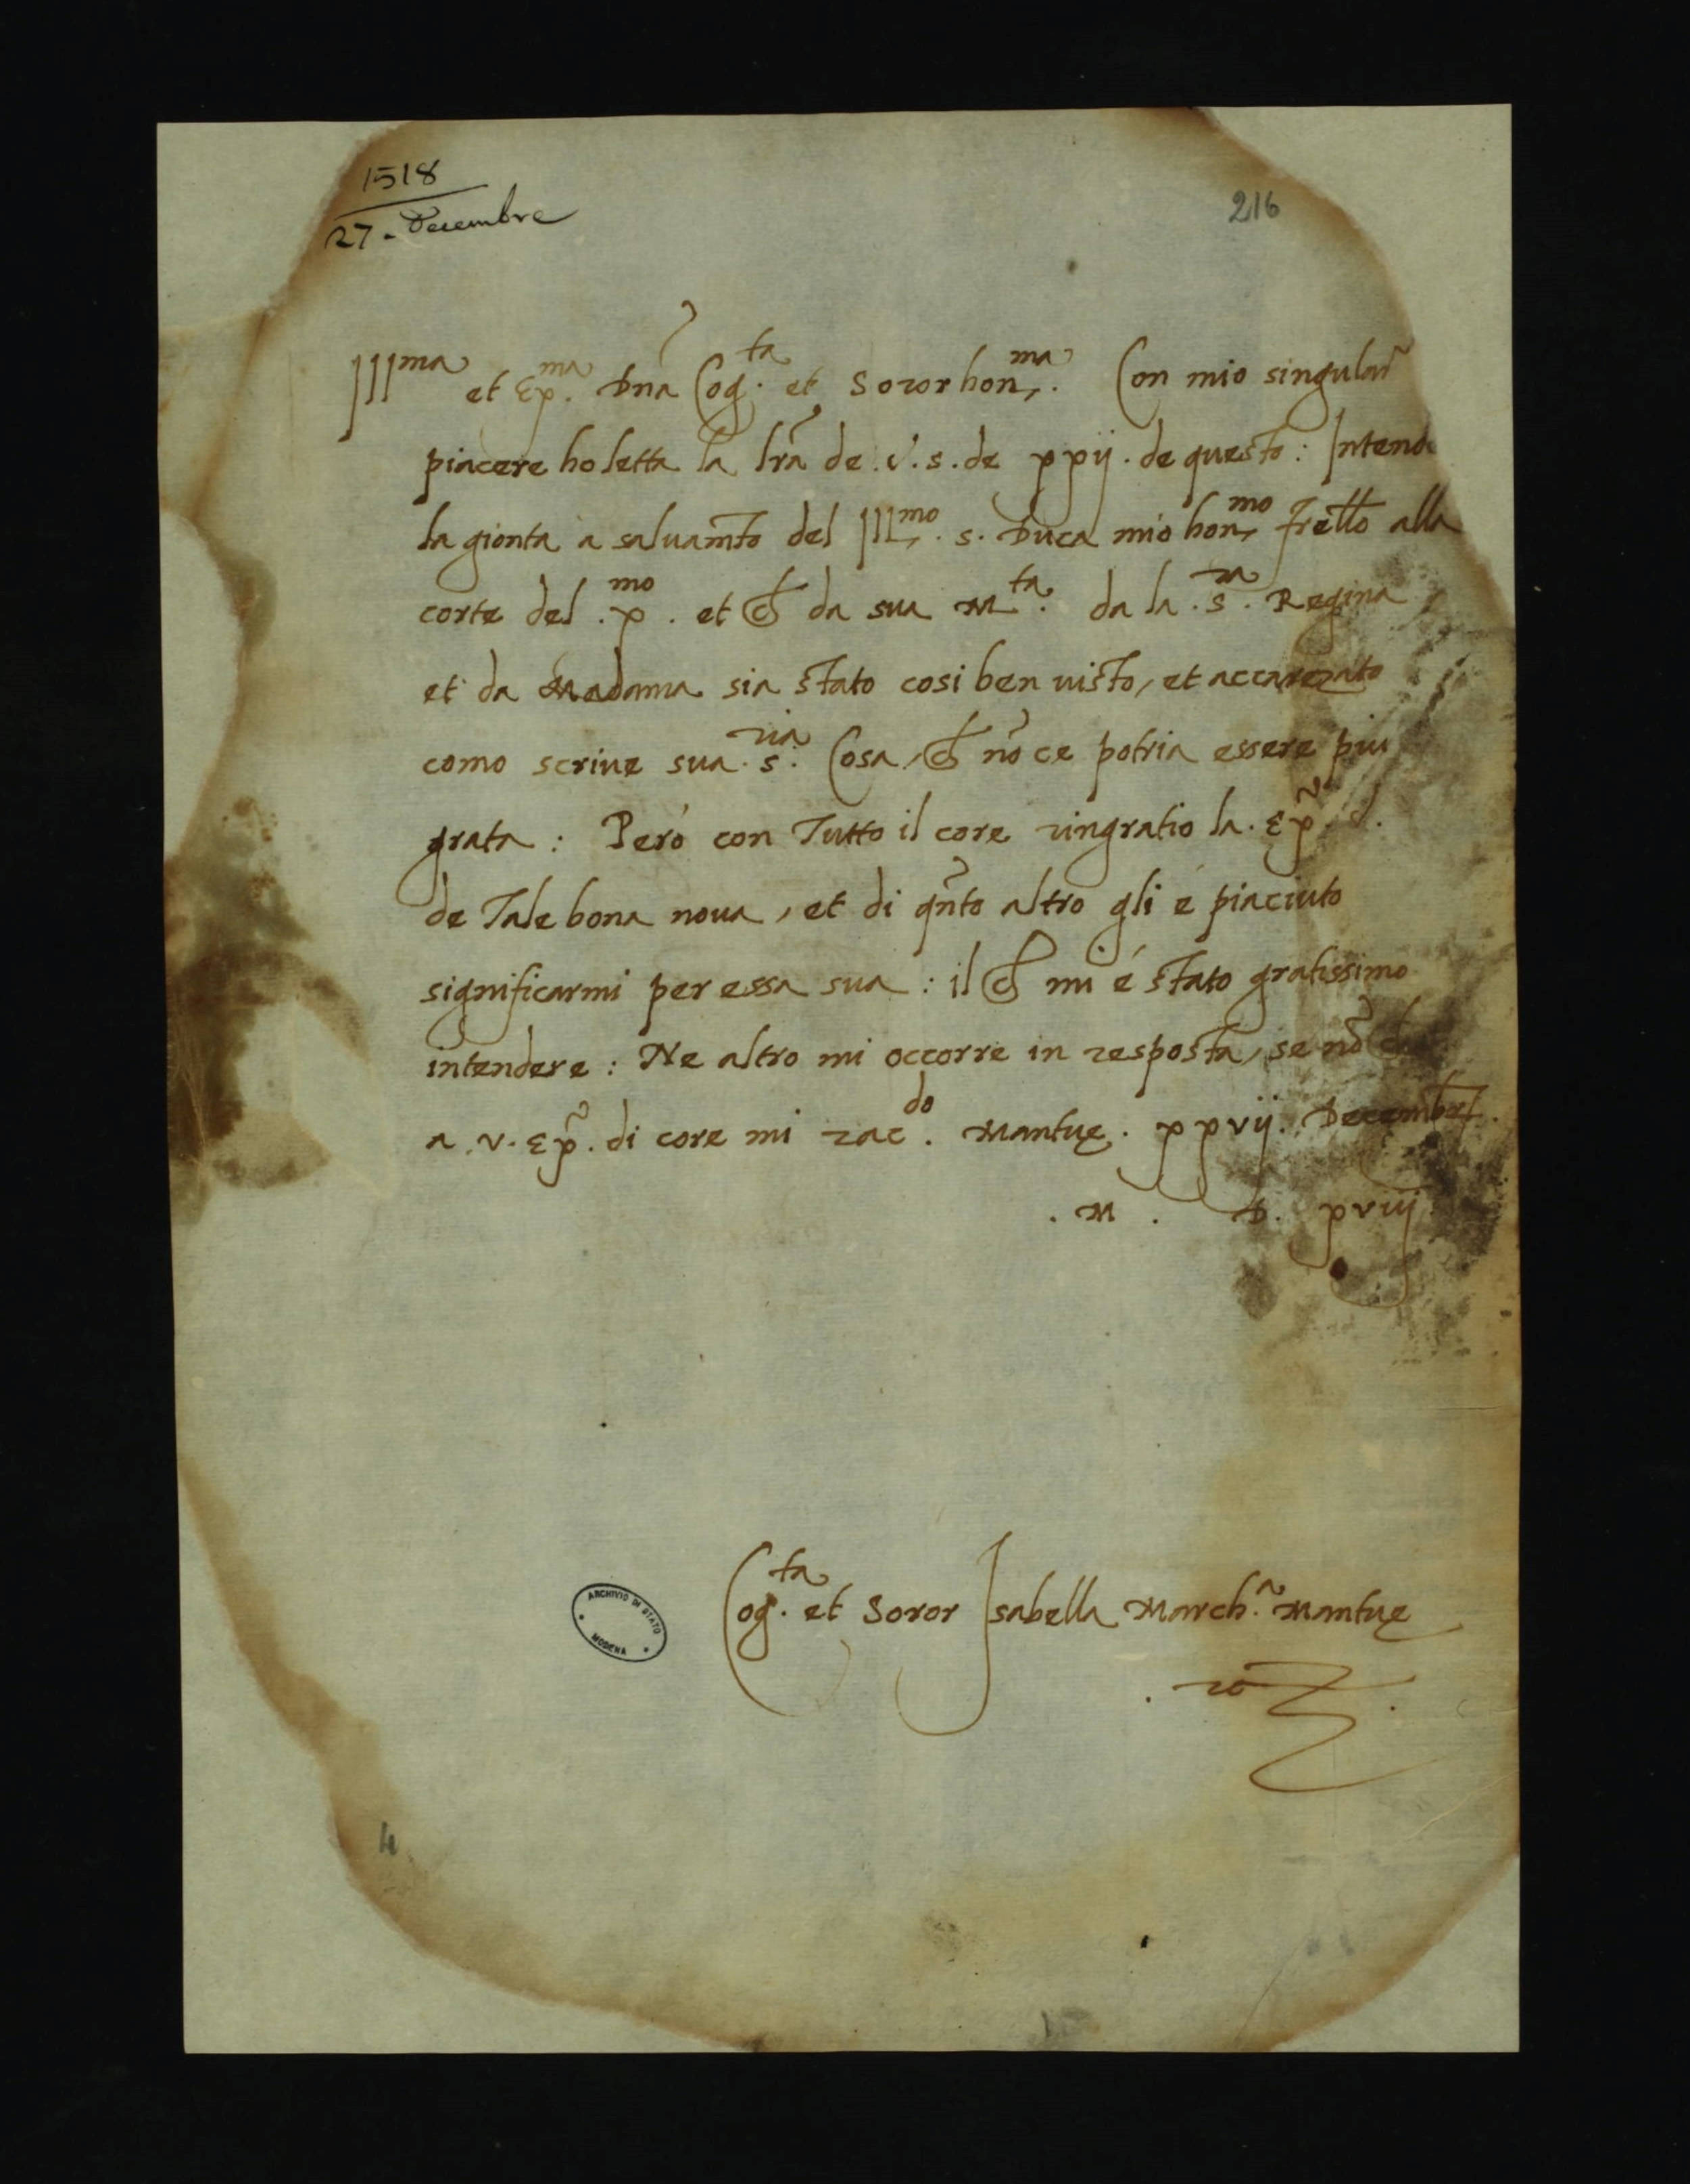 1518
27 - Decembre
216
Illma et Exma. Dna Cogta. et Soror honma. Con mio singular
piacere ho letta la lra de .V. s. de xxij. de questo: Intende
la gionta a saluamto del Illmo. s. Duca mio honmo frello alla
corte del .xmo. et ch da sua Mta. da la .sra. Regina
et da Madama sia stato cosi ben uisto, et accarezato
como scriue sua .sria. Cosa, ch no ce potria essere piu
grata: Però con Tutto il core ringratio la. Ex. V.
de Tale bona noua, et di qnto altro gli è piaciuto
significarmi per essa sua: il ch mi è stato gratissimo
intendere: Ne altro mi occorre in resposta, se no ch
a .v. Ex. di core mi racdo. Mantuę. xxvij. Decembr.
. M . D. xviij
Cogta. et Soror Isabella March.a Mantuę
ARCHIVIO DI STATO
MODENA
4